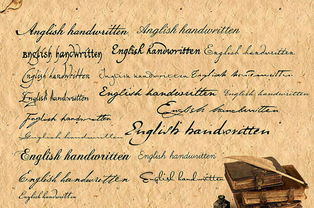 Anglish handwritten Anglish handwritten
English handwritten English handwritten English handwritten
English handwritten English handwritten English handwritten
English handwritten English handwritten English handwritten
English handwritten English handwritten
English handwritten English handwritten
English handwritten English handwritten
English handwritten English handwritten
English handwritten